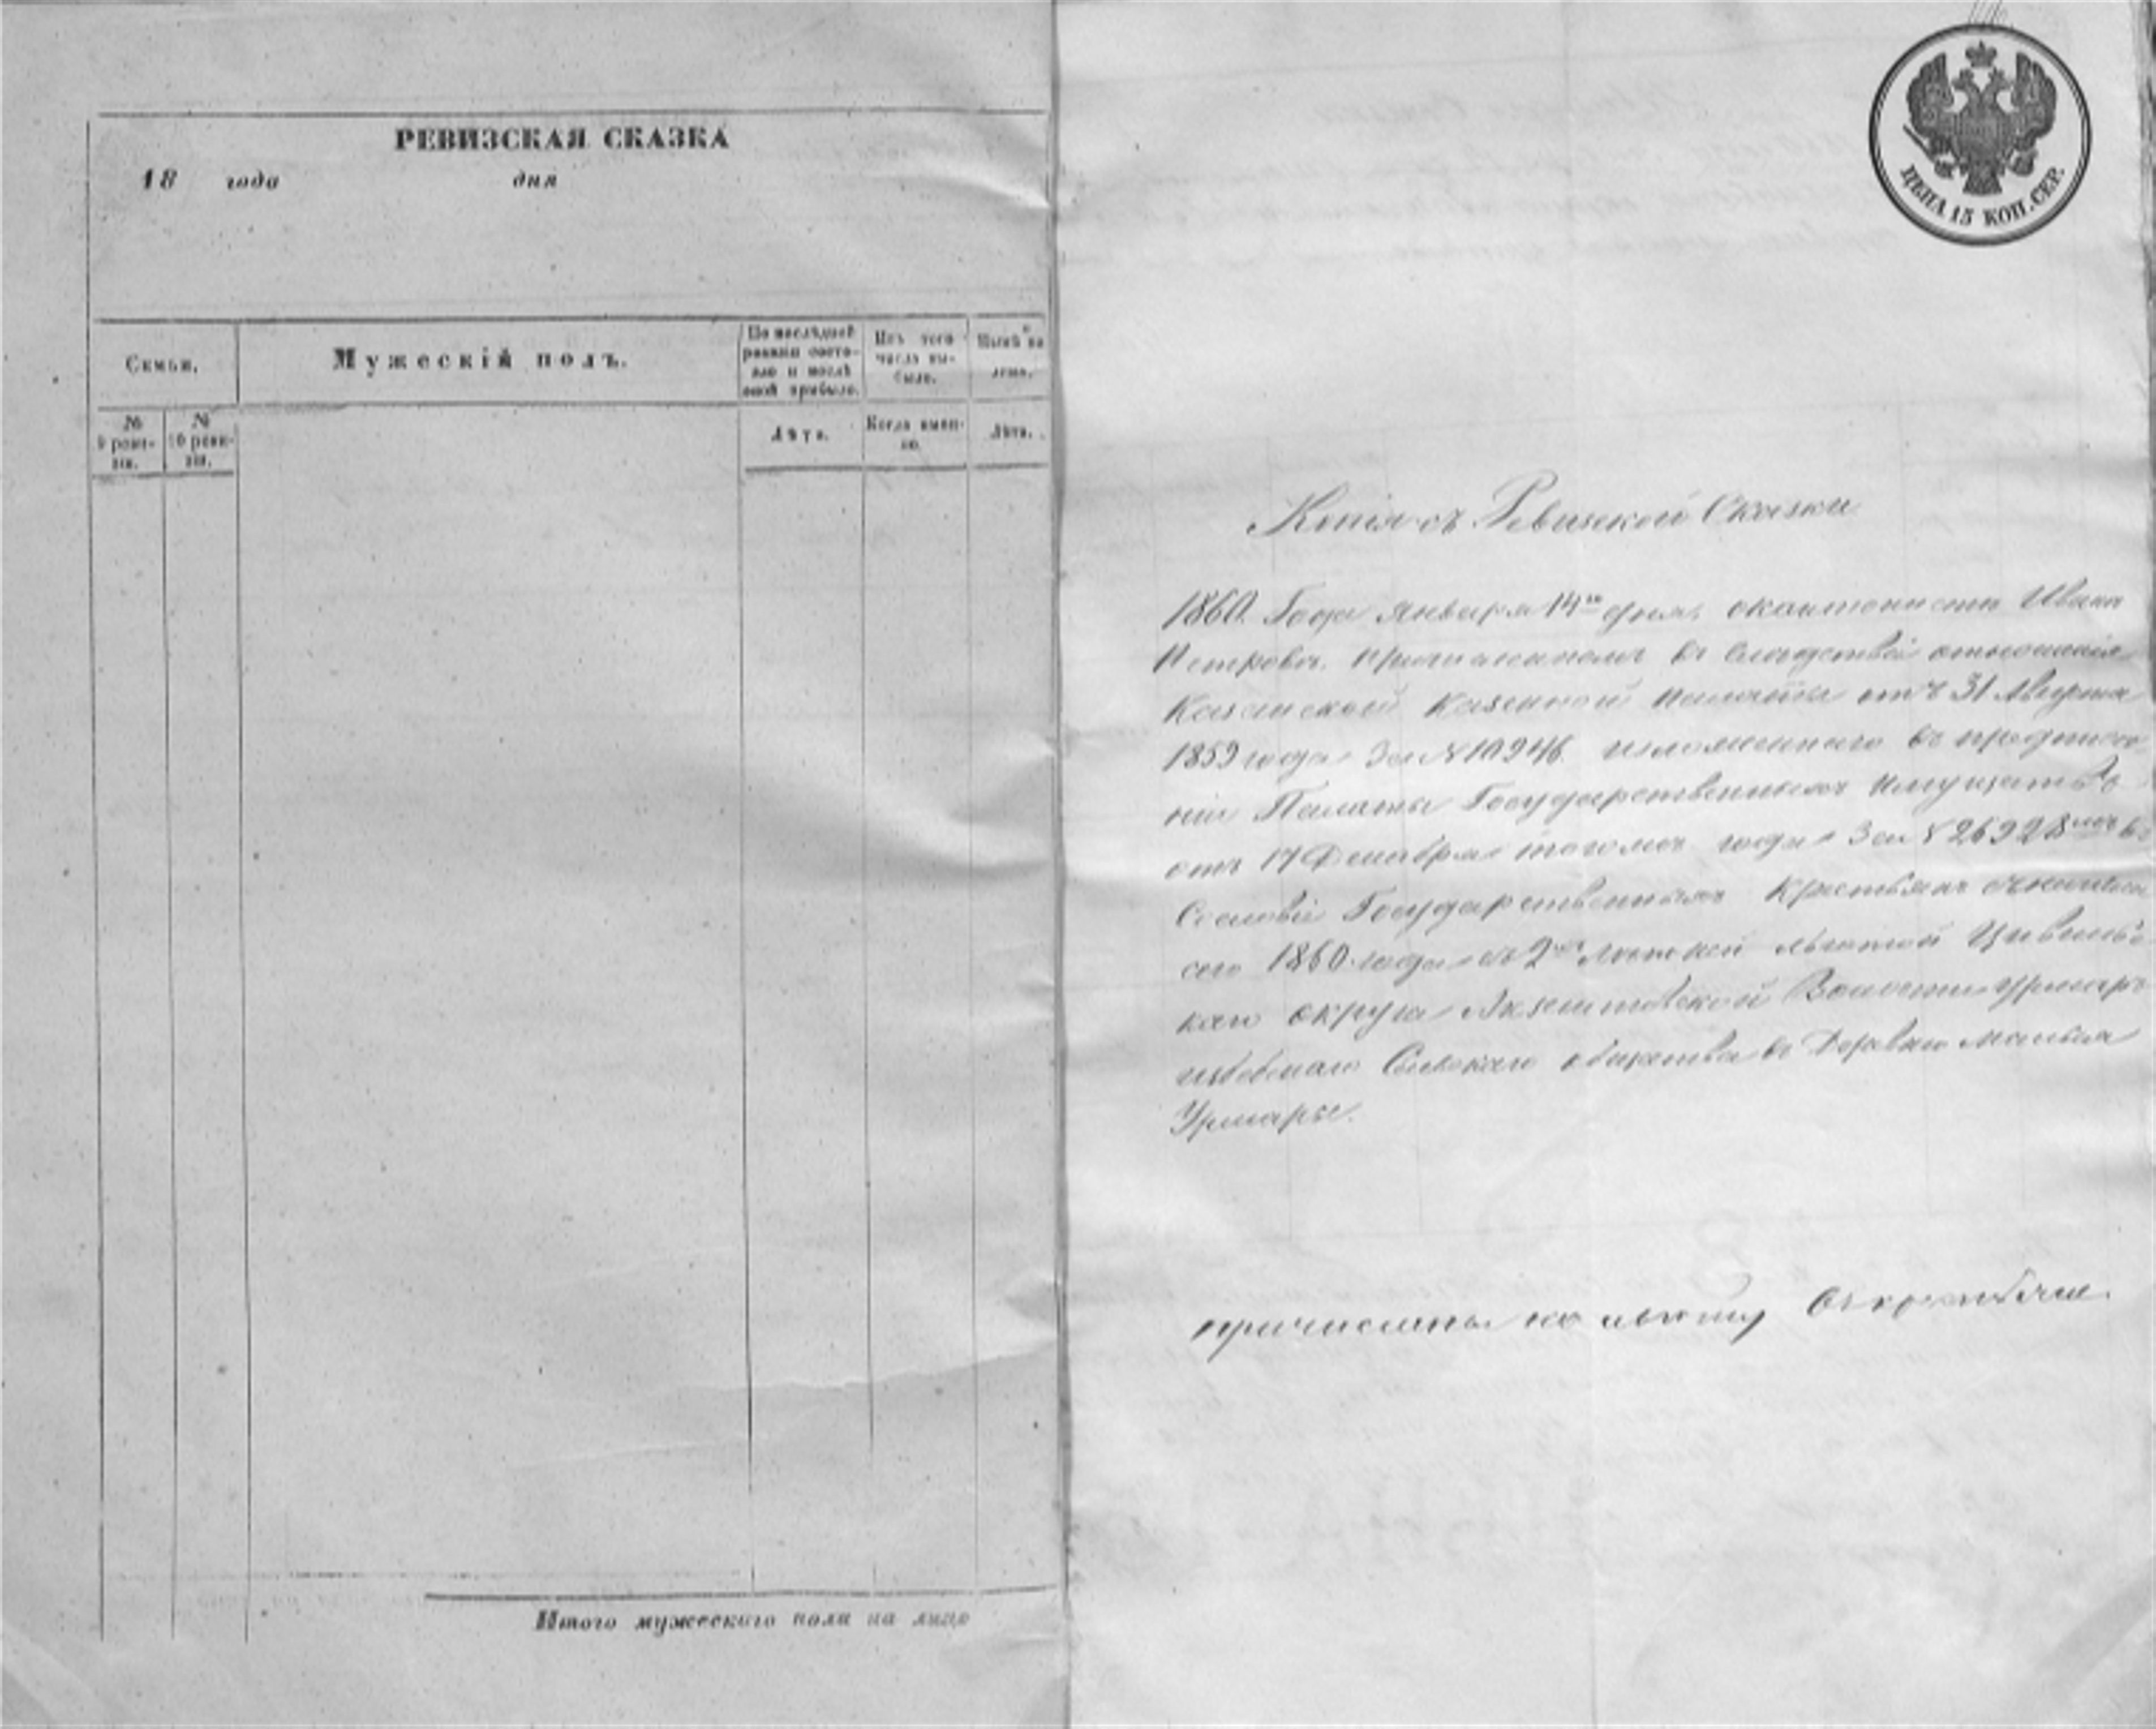 РЕВИЗСКАЯ СКАЗКА
18 года дня
Семьи.
Мужескій полъ.
По послѣдней ревизіи состояло и послѣ оной прибыло.
Изъ того числа выбыло.
Нынѣ на лицо.
№ 9 ревизіи.
№ 10 ревизіи.
Лѣта.
Когда именно.
Лѣта.
Итого мужескаго пола на лицо
ЦѢНА 15 КОП. СЕР.
Копія съ Ревизской Сказки
1860. Года Января 14го дня, окантонистѣ Иванъ
Петровъ. причисленномъ въ слѣдствіи отношенія
Казанской Казенной палаты отъ 31 Августа
1859 года За № 10946. изложеннаго въ предписа
ніи Палаты Государственныхъ Имуществъ
отъ 17 Декабря тогоже года За № 26928мъ въ
Сословіе Государственныхъ Крестьянъ
сего 1860 года съ 2хъ лѣтней льготой Цивильс
каго округа Волости Урмар
Сельскаго общества въ Деревню малыя
Урмары.
причислены по